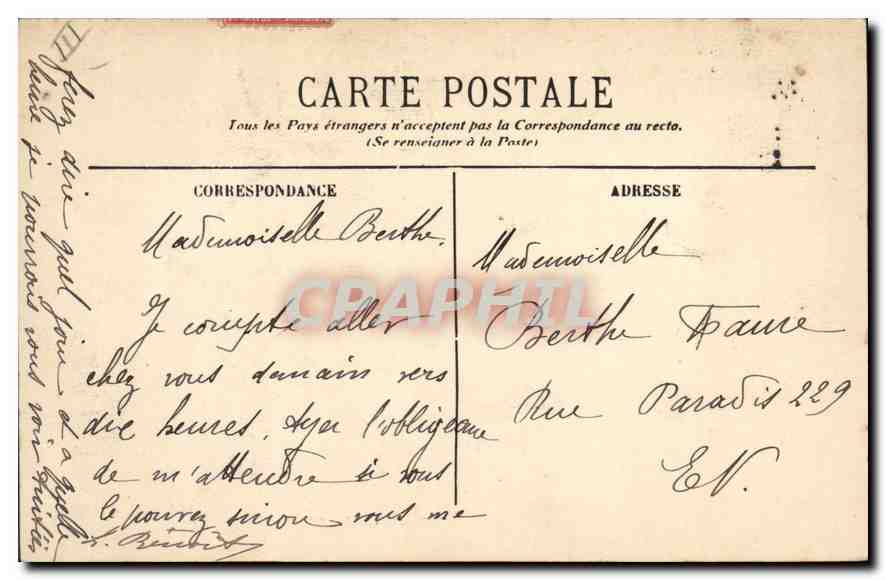 CARTE POSTALE
Tous les Pays étrangers n'acceptent pas la Correspondance au recto.
(Se renseigner à la Poste)
CORRESPONDANCE
Mademoiselle Berthe.
Je compte aller
chez vous demain vers
dix heures. Ayez l'obligeance
de m'attendre si vous
le pouvez sinon vous me
ferez dire quel jour et a quelle
heure je pourrais vous voir Amitiés
L. Benoit
ADRESSE
Mademoiselle
Berthe Faure
Rue Paradis 229
EV.
CPAPHIL
III